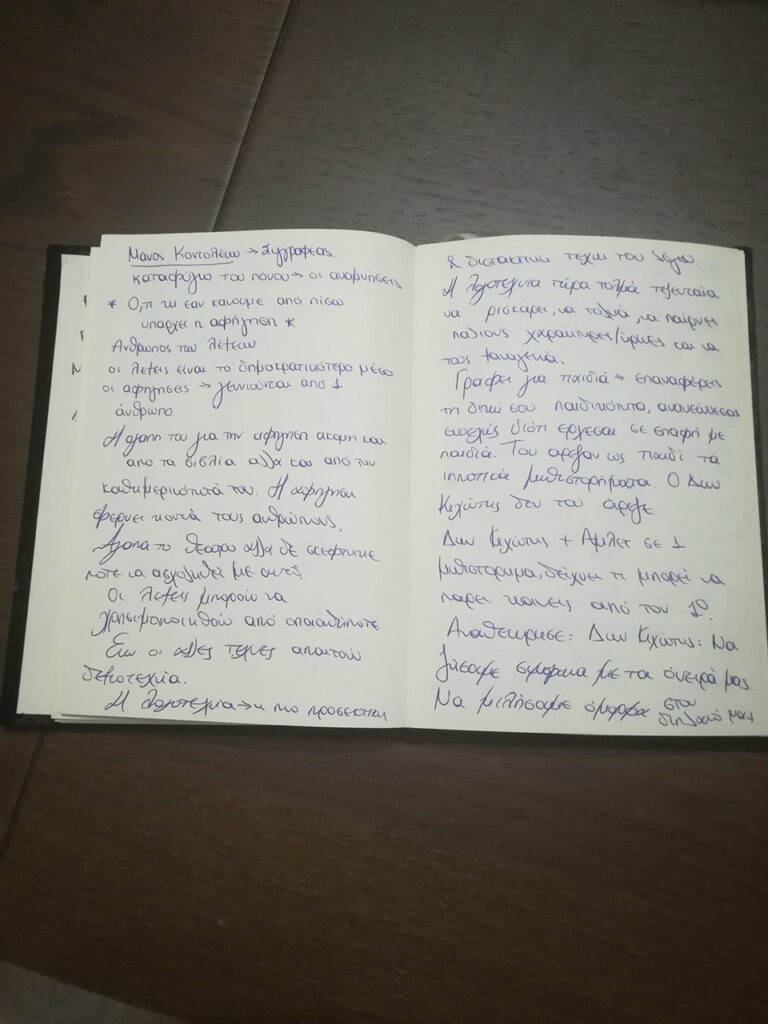 Μάνος Κοντολέων → Συγγραφέας.
καταφύγιο του πόνου → οι αναμνήσεις
* Ο,τι κι εαν κανουμε από πίσω
υπαρχει η αφήγηση *
Ανθρωπος των λέξεων
οι λέξεις είναι το δημοκρατικότερο μέσο
οι αφηγησεις → γεννιούνται από 1
άνθρωπο.
Η αγαπη του για την αφηγηση ακομη και
απο τα βιβλία αλλα και από την
καθημερινότητά του. Η αφηγηση
φερνει κοντά τους ανθρώπους.
Αγαπα το θεατρο αλλα δε σκεφτηκε
ποτε να ασχοληθεί με αυτό.
Οι λέξεις μπορούν να
χρησιμοποιηθούν από οποιονδήποτε
Ενω οι αλλες τεχνες απαιτούν
δεξιοτεχνία.
Η λογοτεχνία → η πιο προσεκτικη
& διστακτικη τεχνη του λόγου.
Η λογοτεχνια τώρα τολμά τελευταία
να ρισκάρει, να τολμα, να παίρνει
παλιους χαρακτηρες/ηρωες και να
τους ξαναγεννά.
Γραφει για παιδιά → επαναφέρεις
τη δική σου παιδικότητα, ανανεώνεσαι
διότι έρχεσαι σε επαφή με
παιδιά. Του αρεζαν ως παιδί τα
ιπποτικά μυθιστορήματα. Ο Δον
Κιχώτης δεν του άρεζε
Δον Κιχώτης + Αμλετ σε 1
μυθιστορημα, δείχνει τι μπορεί να
παρει κανεις από τον 1ο.
Αναθεωρησε: Δον Κιχώτης: Να
ζησουμε με τα όνειρά μας.
Να μιλήσουμε όμορφα στον
διπλανό μας